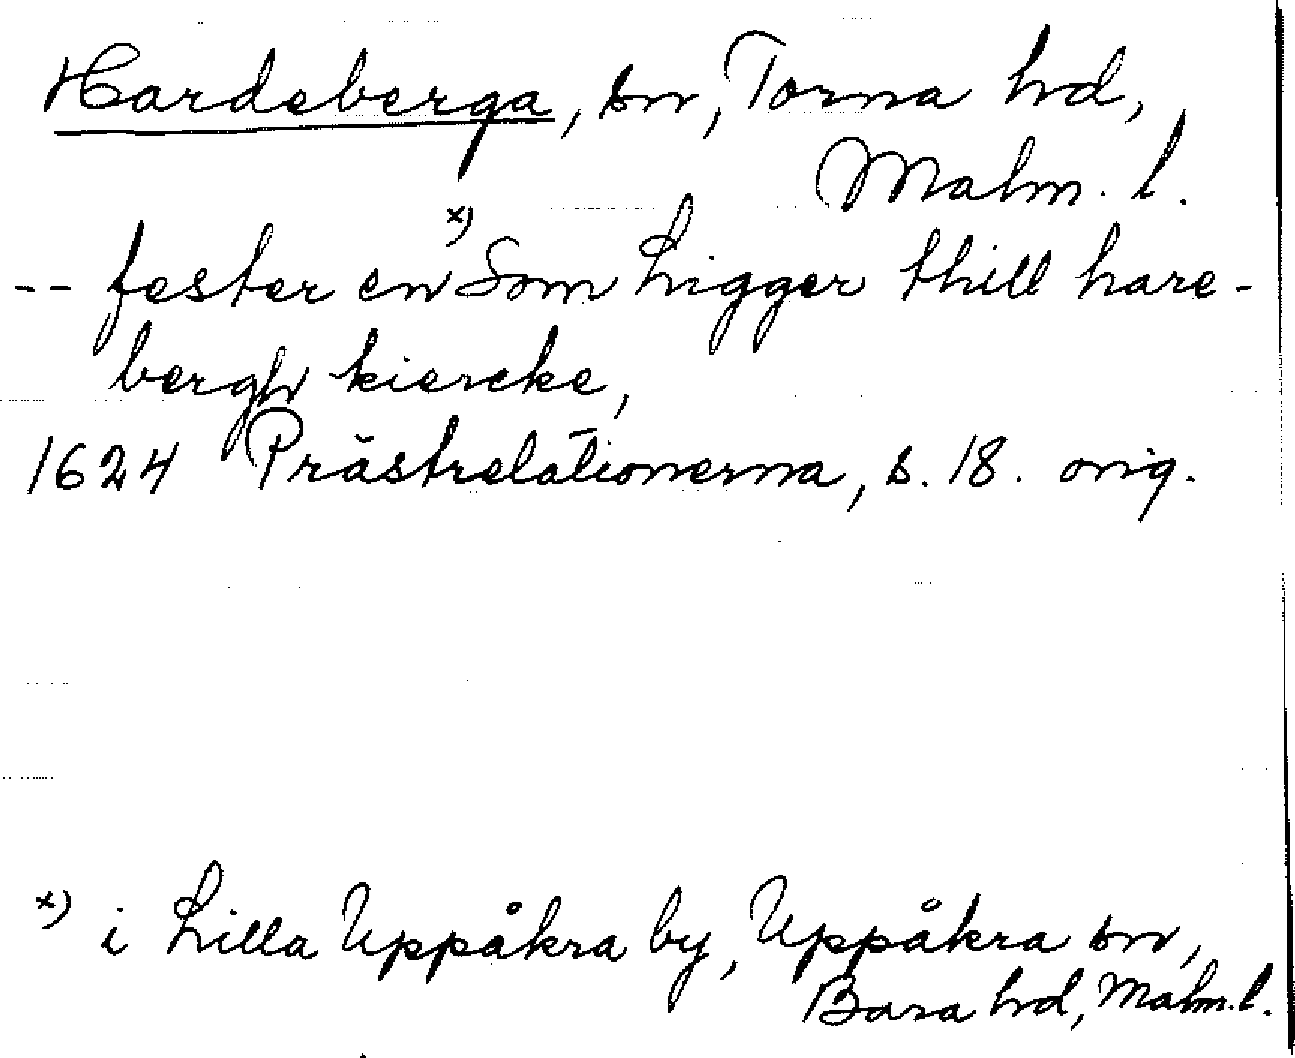 Hardeberga, sn, Torna hd,
Malm. l.
-- fester en x) Som Ligger thill hare-
bergh kiercke,
1624 Prästrelationerna, s. 18. orig.
x) i Lilla Uppåkra by, Uppåkra sn,
Bara hd, Malm. l.